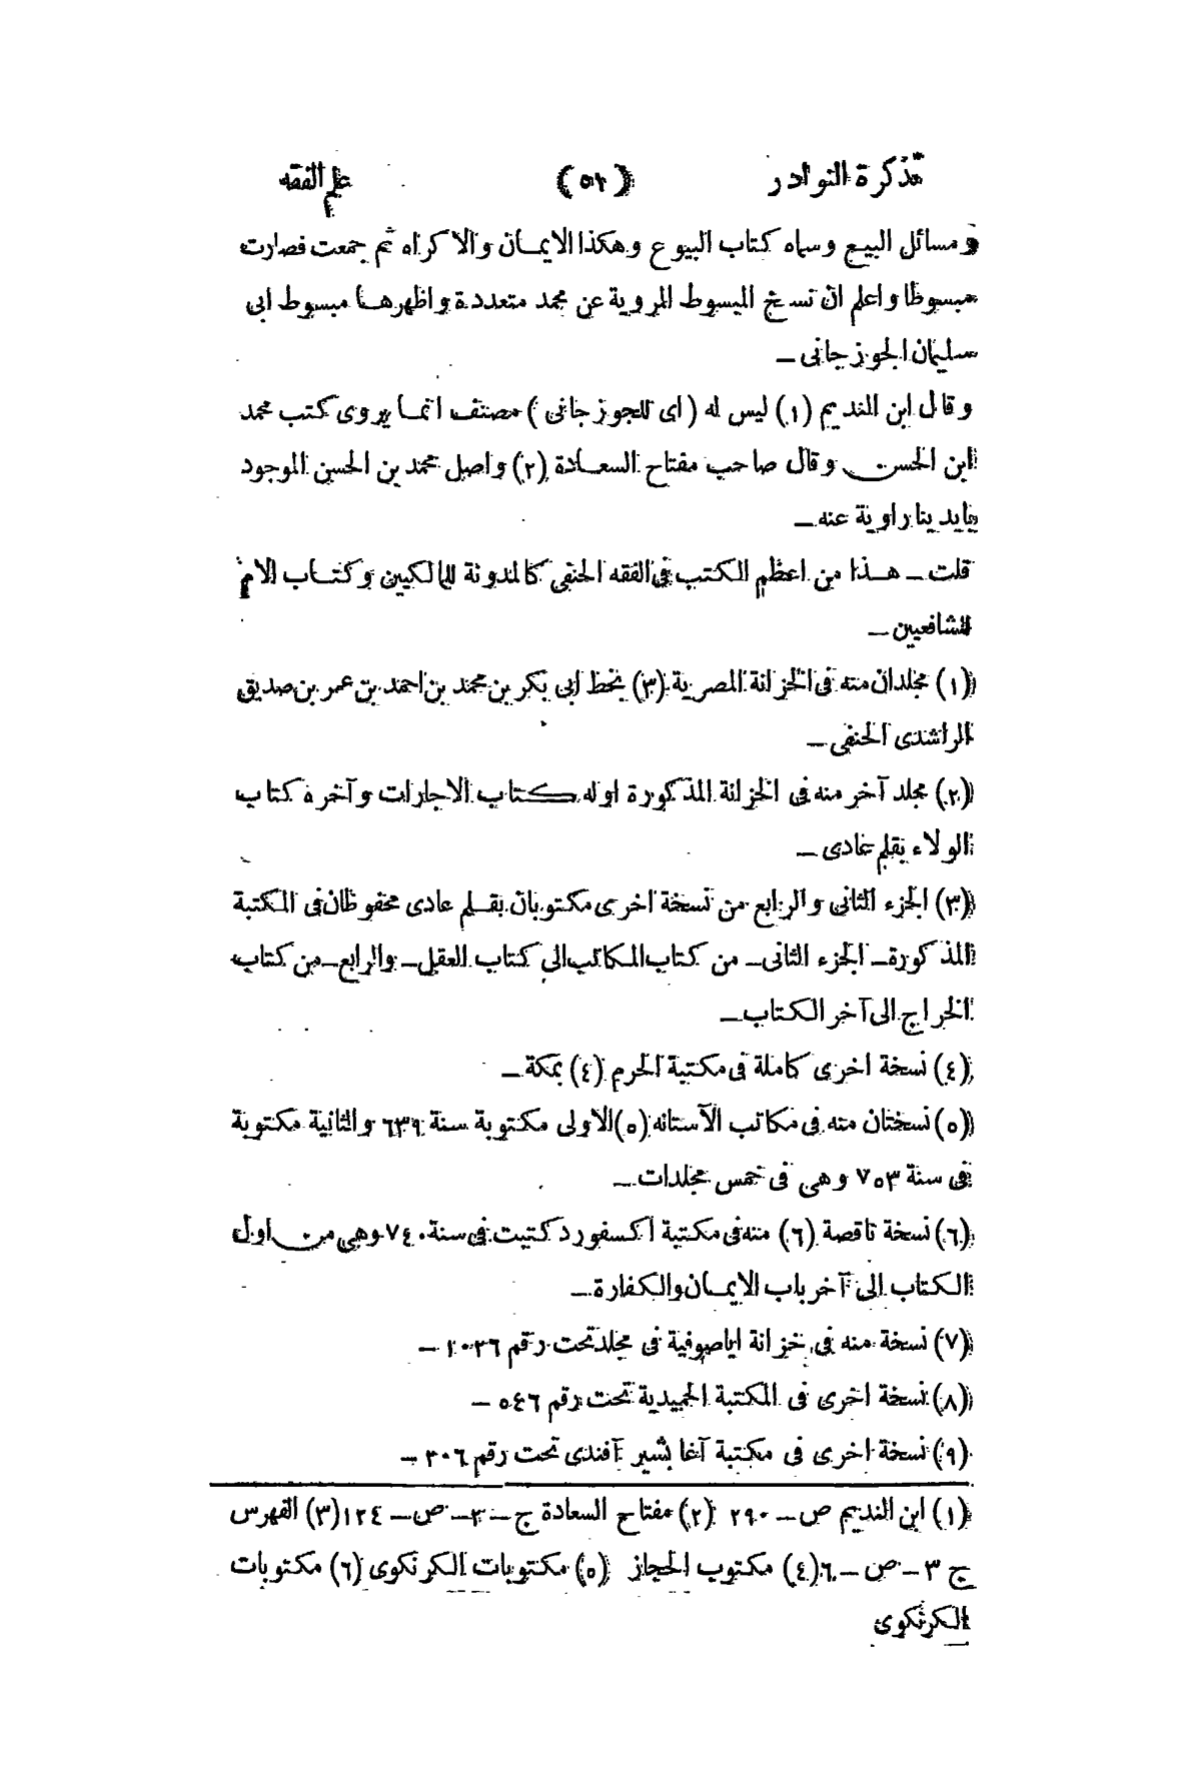 تذكرة النوادر (٥٢) علم الفقه
ومسائل البيع وسماه كتاب البيوع وهكذا الايمان والاكراه ثم جمعت فصارت
مبسوطا واعلم ان نسخ المبسوط المروية عن محمد متعددة واظهرها مبسوط ابى
سليمان الجوزجانى ــ
وقال ابن النديم (١) ليس له (اى للجوزجانى) مصنف انما يروى كتب محمد
ابن الحسن وقال صاحب مفتاح السعادة (٢) واصل محمد بن الحسن الموجود
بايدينا راوية عنه ــ
قلت ــ هذا من اعظم الكتب فى الفقه الحنفى كالمدونة للمالكيين وكتاب الام
للشافعيين ــ
(١) مجلدان منه فى الخزانة المصرية (٣) بخط ابى بكر بن محمد بن احمد بن عمر بن صديق
الراشدى الحنفى ــ
(٢) مجلد آخر منه فى الخزانة المذكورة اوله كتاب الاجارات وآخره كتاب
الولاء بقلم عادى ــ
(٣) الجزء الثانى والرابع من نسخة اخرى مكتوبان بقلم عادى محفوظان فى المكتبة
المذكورة ــ الجزء الثانى ــ من كتاب المكاتب الى كتاب العقل ــ والرابع ــ من كتاب
الخراج الى آخر الكتاب ــ
(٤) نسخة اخرى كاملة فى مكتبة الحرم (٤) بمكة ــ
(٥) نسختان منه فى مكاتب الآستانه (٥) الاولى مكتوبة سنة ٦٣٩ والثانية مكتوبة
فى سنة ٧٥٣ وهى فى خمس مجلدات ــ
(٦) نسخة ناقصة (٦) منه فى مكتبة اكسفورد كتبت فى سنة ٧٤٠ وهى من اول
الكتاب الى آخر باب الايمان والكفارة ــ
(٧) نسخة منه فى خزانة اياصوفية فى مجلد تحت رقم ١٠٢٦ ــ
(٨) نسخة اخرى فى المكتبة الحميدية تحت رقم ٥٤٦ ــ
(٩) نسخة اخرى فى مكتبة آغا بشير آفندى تحت رقم ٣٠٦ ــ
(١) ابن النديم ص ــ ٢٩٠ (٢) مفتاح السعادة ج ــ ٢ ــ ص ــ ١٢٤ (٣) الفهرس
ج ٣ ــ ص ــ ٦ (٤) مكتوب الحجاز (٥) مكتوبات الكرنكوى (٦) مكتوبات
الكرنكوى